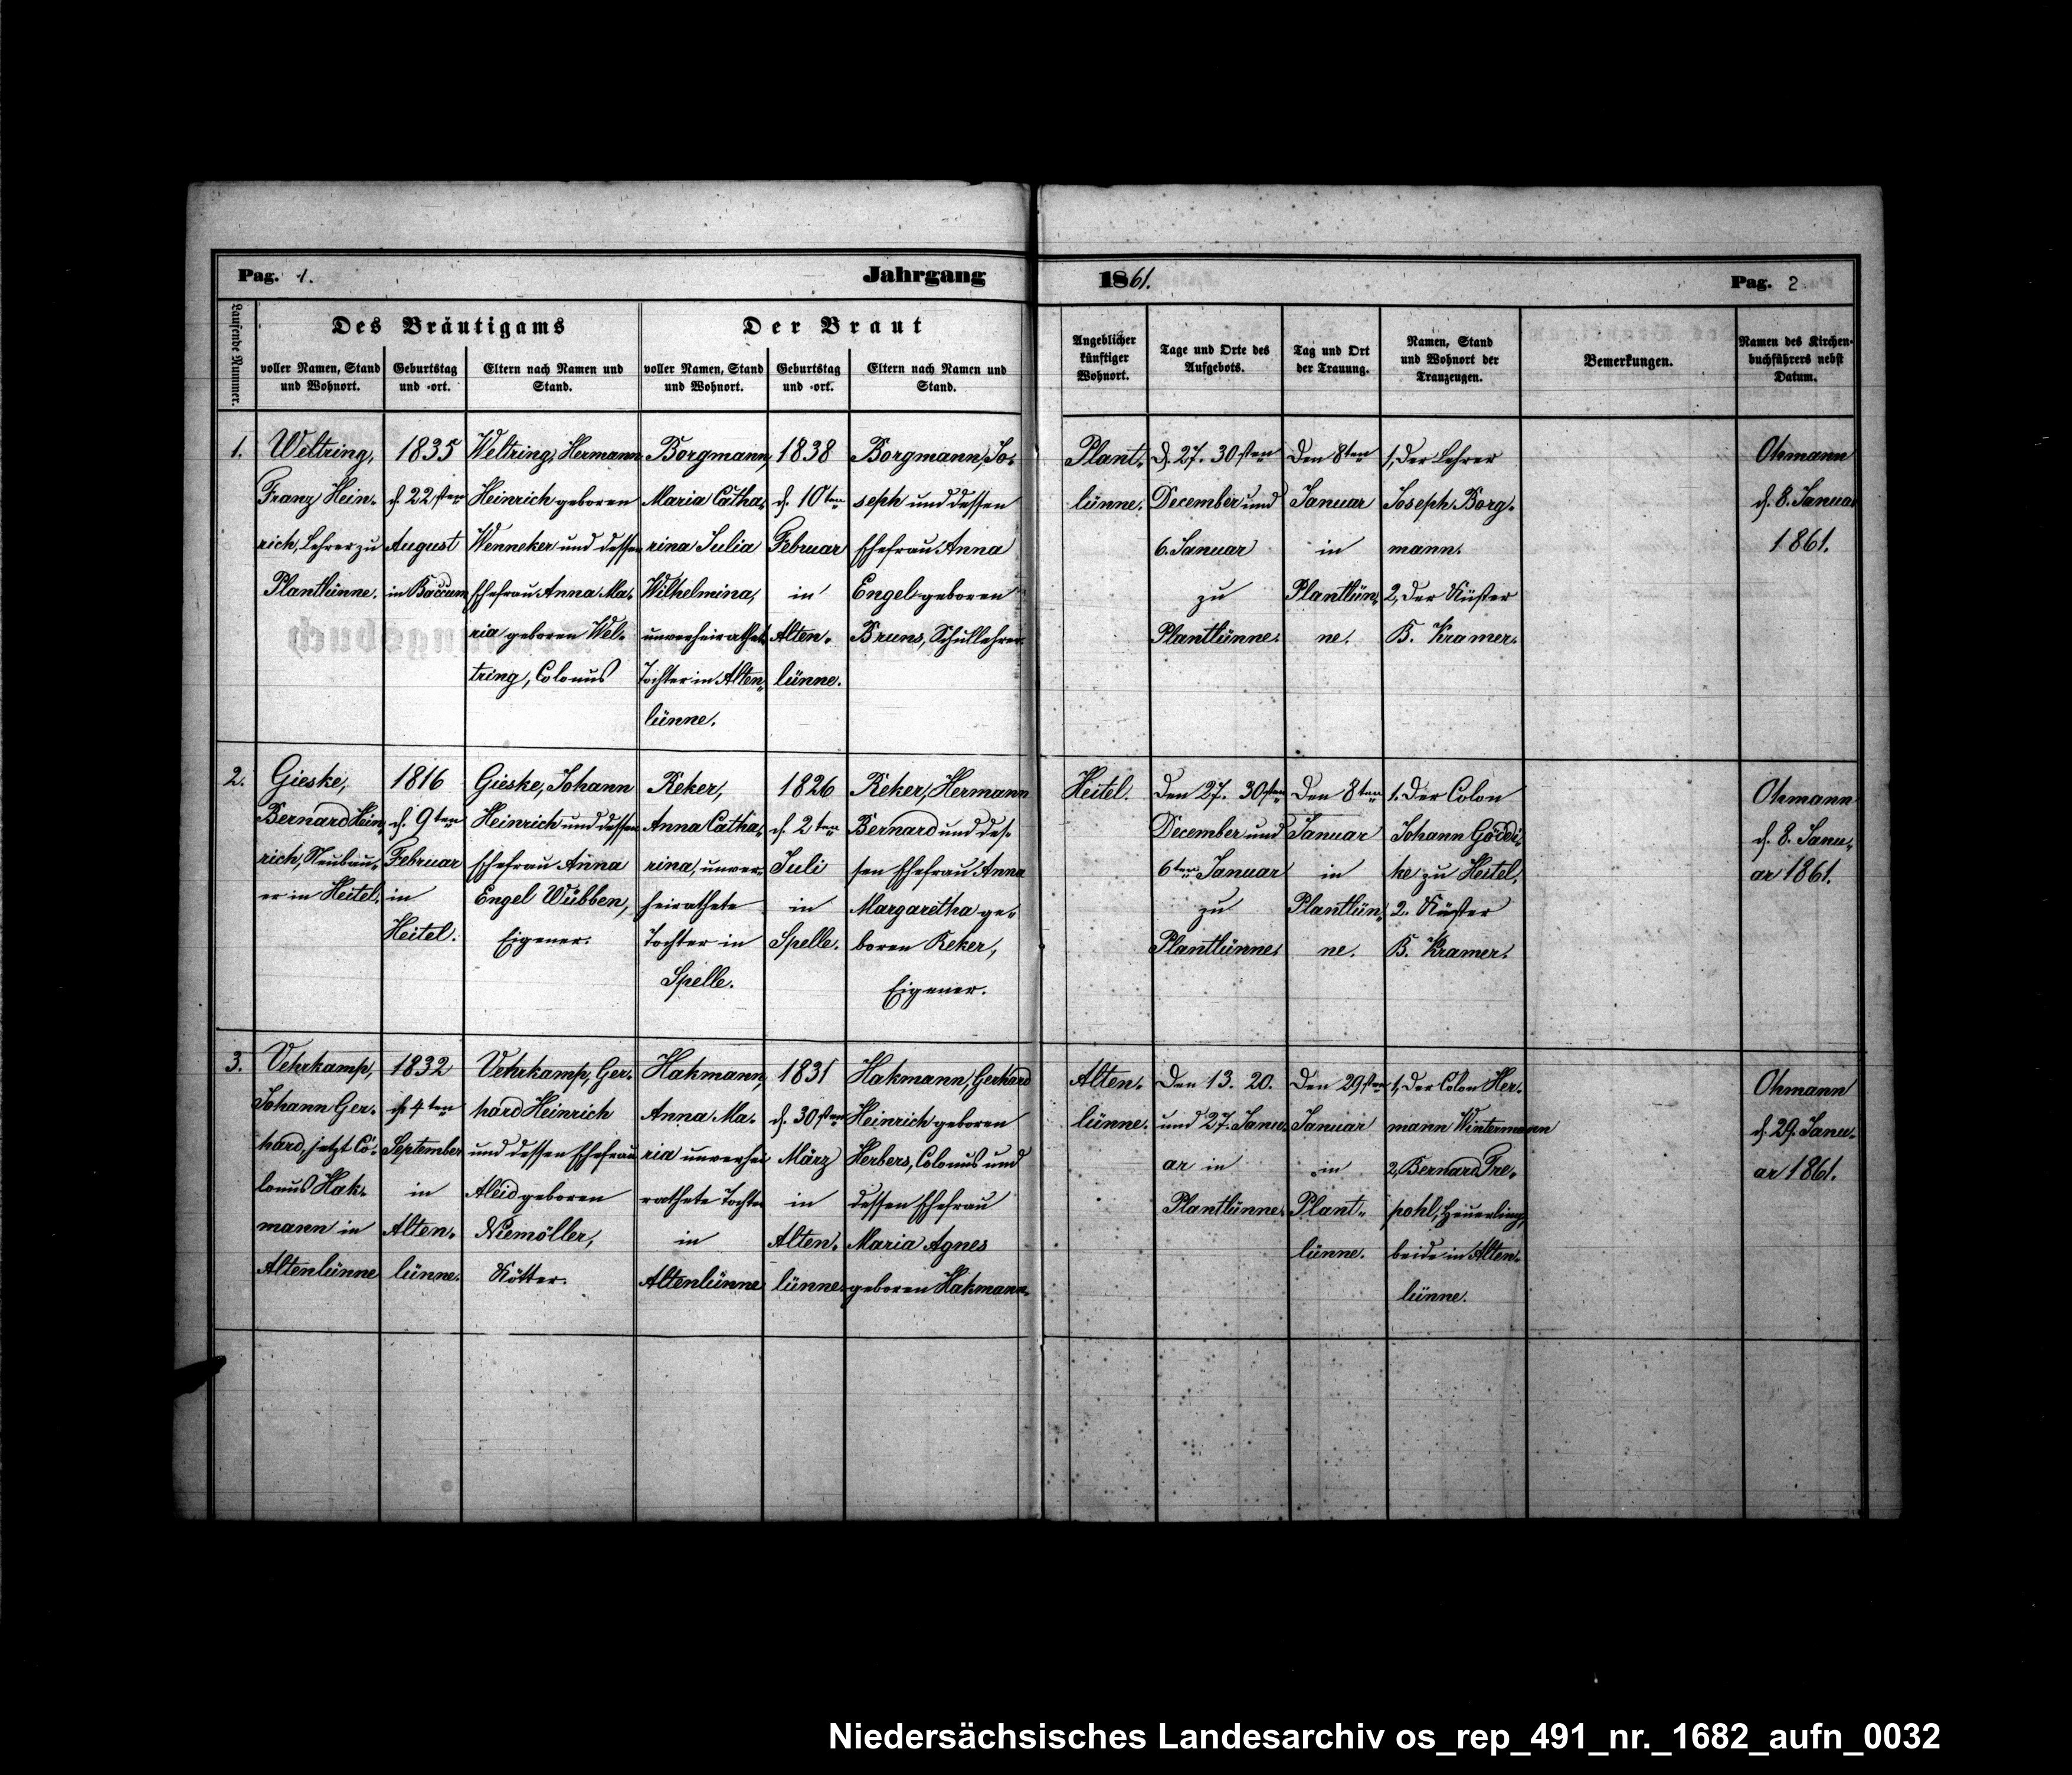 Pag. 1.
Jahrgang
1861.
Pag. 2
Laufende Nummer.
Des Bräutigams
Der Braut
voller Namen, Stand
und Wohnort.
Geburtstag
und -ort.
Eltern nach Namen und
Stand.
voller Namen, Stand
und Wohnort.
Geburtstag
und -ort.
Eltern nach Namen und
Stand.
Angeblicher
künftiger
Wohnort.
Tage und Orte des
Aufgebots.
Tag und Ort
der Trauung.
Namen, Stand
und Wohnort der
Trauzeugen.
Bemerkungen.
Namen des Kirchen-
buchführers nebst
Datum.
1.
Weltring,
Franz Hein-
rich, Lehrer zu
Plantlünne.
1835
d. 22sten
August
in Baccum
Weltring, Hermann
Heinrich geboren
Wenneker und dessen
Ehefrau Anna Ma-
ria geboren Wel-
tring, Colonus
Borgmann,
Maria Catha-
rina Julia
Wilhelmina,
unverheirathete
Tochter in Alten-
lünne.
1838
d. 10ten
Februar
in
Alten-
lünne.
Borgmann, Jo-
seph und dessen
Ehefrau Anna
Engel geboren
Bruns, Schullehrer
Plant-
lünne.
d. 27. 30sten
December und
6. Januar
zu
Plantlünne.
Den 8ten
Januar
in
Plantlün-
ne.
1, Der Lehrer
Joseph Borg-
mann.
2, Der Küster
B. Kramer.
Ohmann
d. 8. Januar
1861.
2.
Gieske,
Bernard Hein-
rich, Neubau-
er in Heitel.
1816
d. 9ten
Februar
in
Heitel.
Gieske, Johann
Heinrich und dessen
Ehefrau Anna
Engel Wübben,
Eigener.
Reker,
Anna Catha-
rina, unver-
heirathete
Tochter in
Spelle.
1826
d. 2ten
Juli
in
Spelle.
Reker, Hermann
Bernard und des-
sen Ehefrau Anna
Margaretha ge-
boren Reker,
Eigener.
Heitel.
Den 27. 30sten
December und
6ten Januar
zu
Plantlünne.
Den 8ten
Januar
in
Plantlün-
ne.
1. Der Colon
Johann Göcdi-
ke zu Heitel,
2. Küster
B. Kramer.
Ohmann
d. 8. Janu-
ar 1861.
3.
Vehrkamp,
Johann Ger-
hard, jetzt Co-
lonus Hak-
mann in
Altenlünne
1832
d. 4ten
September
in
Alten-
lünne.
Vehrkamp, Ger-
hard Heinrich
und dessen Ehefrau
Aleid geboren
Niemöller,
Kötter.
Hakmann,
Anna Ma-
ria unverhei
rathete Tochter
in
Altenlünne
1831
d. 30sten
März
in
Alten-
lünne.
Hakmann, Gerhard
Heinrich geboren
Herbers, Colonus und
dessen Ehefrau
Maria Agnes
geboren Hakmann.
Alten-
lünne.
Den 13. 20.
und 27. Janu-
ar in
Plantlünne.
Den 29sten
Januar
in
Plant-
lünne.
1, Der Colon Her-
mann Wintermann
2, Bernard Tre-
pohl, Heuerling,
beide in Alten-
lünne.
Ohmann
d. 29. Janu-
ar 1861.
Niedersächsisches Landesarchiv os_rep_491_nr._1682_aufn_0032